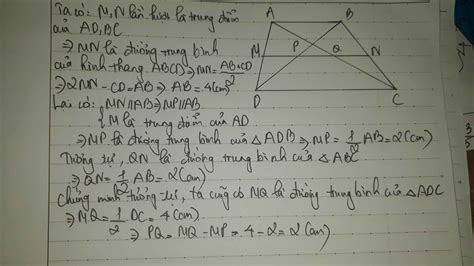 Ta có: M,N lần lượt là trung điểm
của AD,BC
⇒ MN là đường trung bình
của hình thang ABCD ⇒ MN = AB+CD / 2
⇒ 2MN - CD = AB ⇒ AB = 4(cm)
Lại có: { MN//AB ⇒ MP//AB
M là trung điểm của AD
⇒ MP là đường trung bình của △ADB ⇒ MP = 1/2 AB = 2(cm)
Tương tự, QN là đường trung bình của △ABC
⇒ QN = 1/2 AB = 2(cm)
Chứng minh tương tự, ta cũng có MQ là đường trung bình của △ADC
⇒ MQ = 1/2 DC = 4(cm)
⇒ PQ = MQ - MP = 4 - 2 = 2(cm)
A B
M P Q N
D C